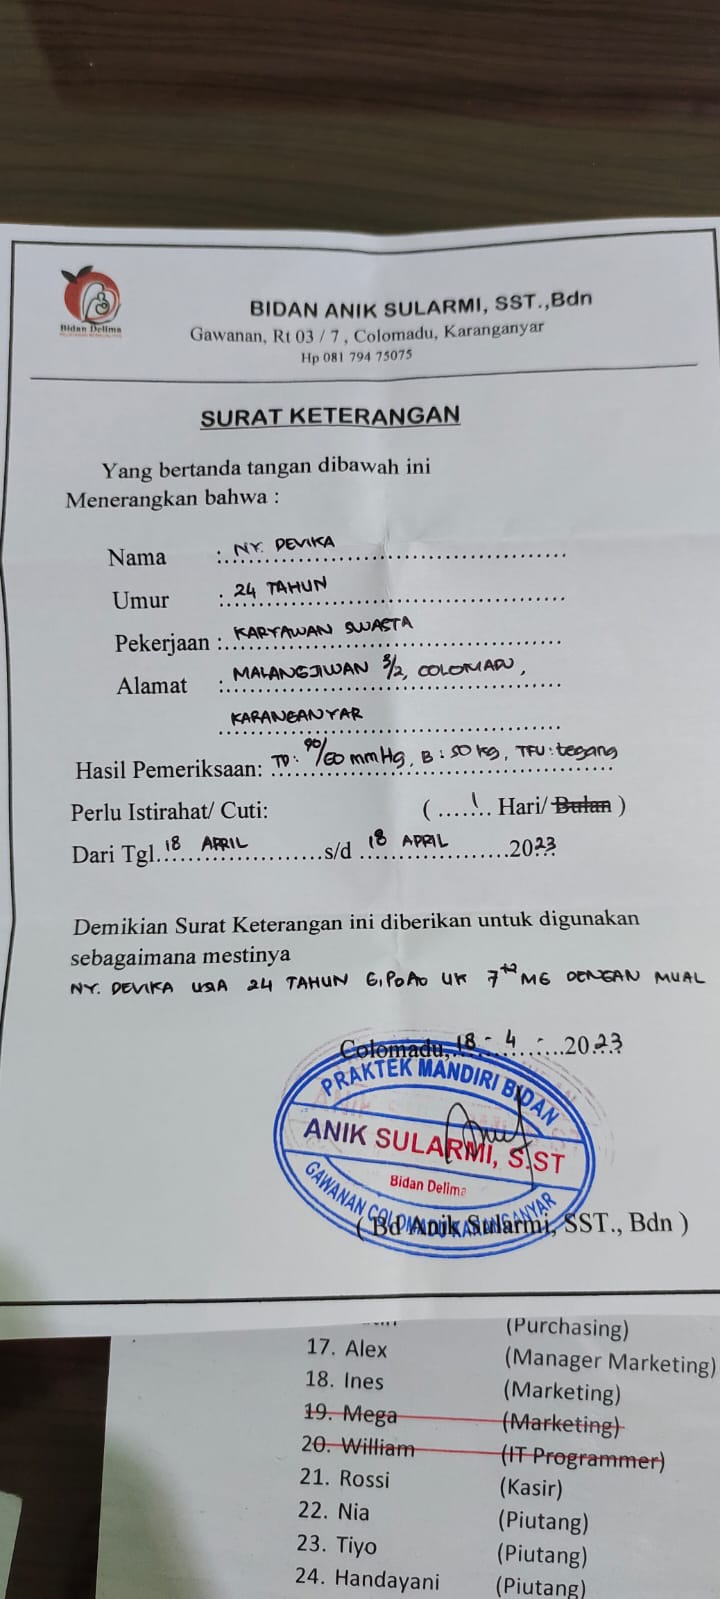 Bidan Delima
BIDAN ANIK SULARMI, SST.,Bdn
Gawanan, Rt 03 / 7 , Colomadu, Karanganyar
Hp 081 794 75075
SURAT KETERANGAN
Yang bertanda tangan dibawah ini
Menerangkan bahwa :
Nama : NY. DEVIKA
Umur : 24 TAHUN
Pekerjaan : KARYAWAN SWASTA
Alamat : MALANGJIWAN 3/2, COLOMADU,
KARANGANYAR
Hasil Pemeriksaan: TD: 90/60 mmHg, B : 50 kg, TFU : tegang
Perlu Istirahat/ Cuti: ( 1 Hari/ Bulan )
Dari Tgl. 18 APRIL s/d 18 APRIL 2023
Demikian Surat Keterangan ini diberikan untuk digunakan
sebagaimana mestinya
NY. DEVIKA USIA 24 TAHUN G1P0A0 UK 7 MG DENGAN MUAL
Colomadu, 18 - 4 - 2023
PRAKTEK MANDIRI BIDAN
ANIK SULARMI, S.ST
Bidan Delima
GAWANAN COLOMADU KARANGANYAR
( Bd Anik Sularmi, SST., Bdn )
(Purchasing)
17. Alex (Manager Marketing)
18. Ines (Marketing)
19. Mega (Marketing)
20. William (IT Programmer)
21. Rossi (Kasir)
22. Nia (Piutang)
23. Tiyo (Piutang)
24. Handayani (Piutang)